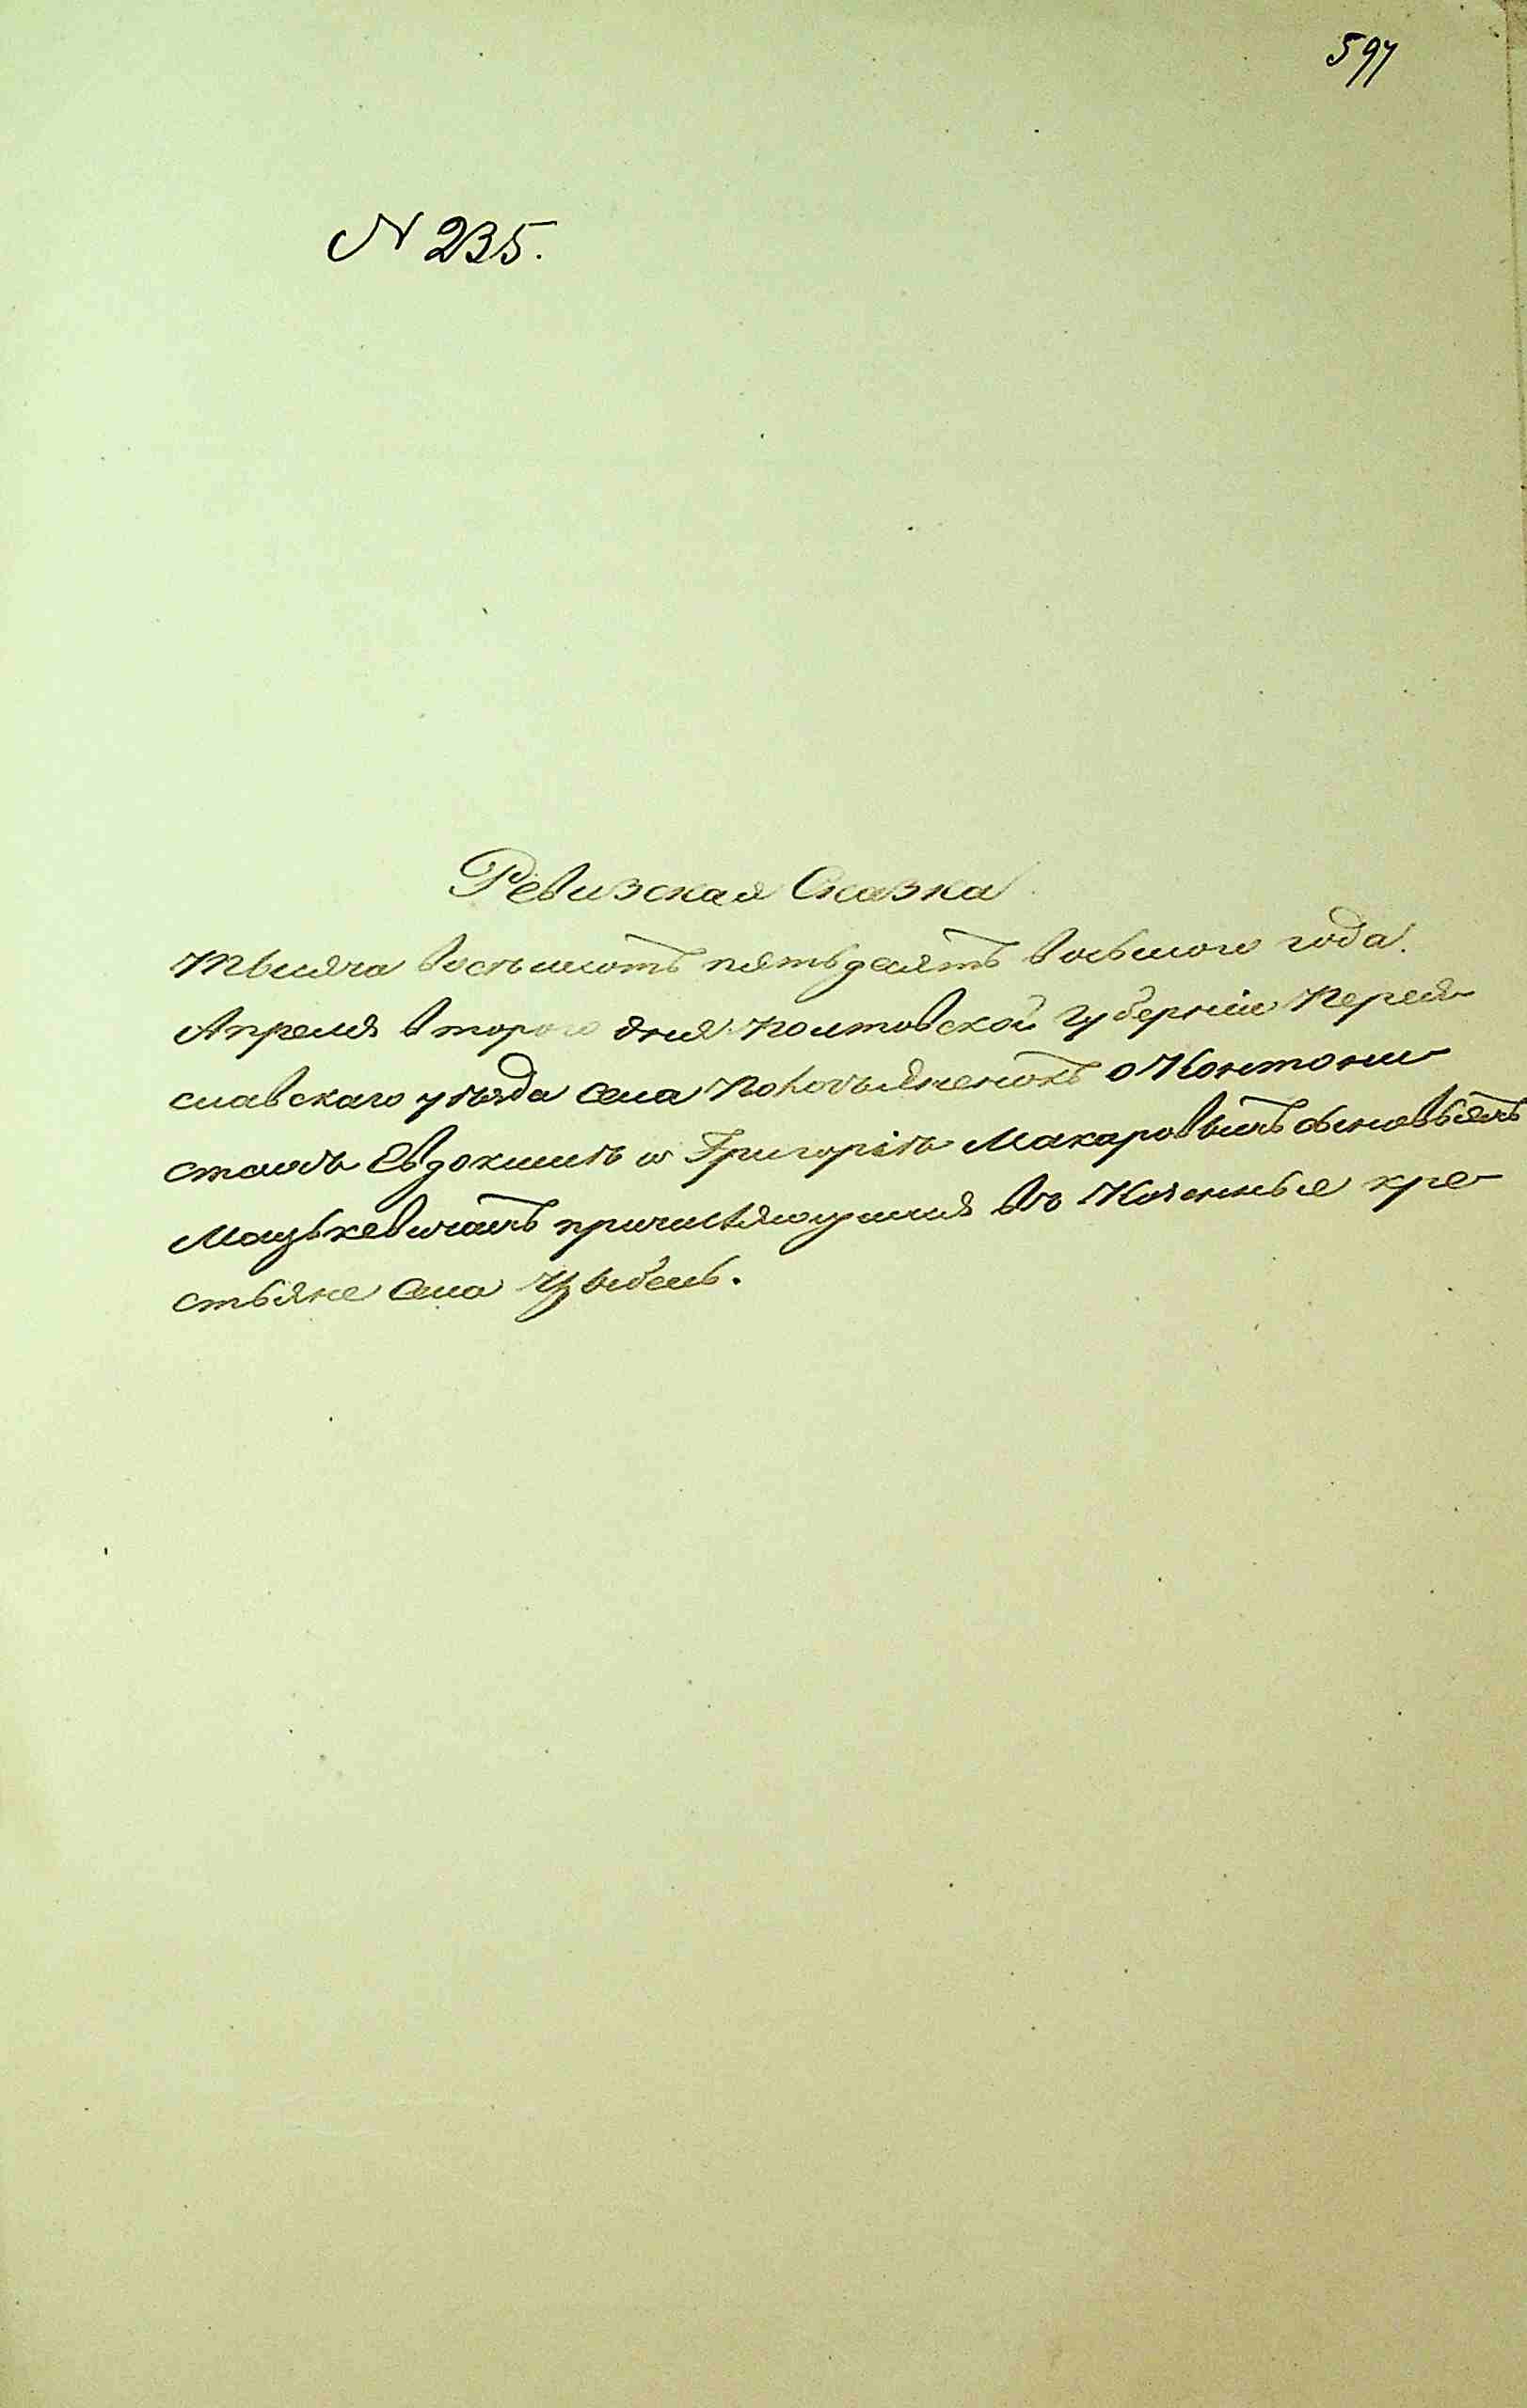 597
N 235.
Ревизская Сказка
Тысяча восемьсотъ пятьдесятъ восьмого года.
Апреля второго дня Полтовской Губерніи Перея-
славскаго уезда села о Контони-
стахъ Евдокимъ и Григоріи Макаровыхъ сыновьяхъ
Мацькевичахъ причисляющихся въ Козенные кре-
стьяне села Цыбель.